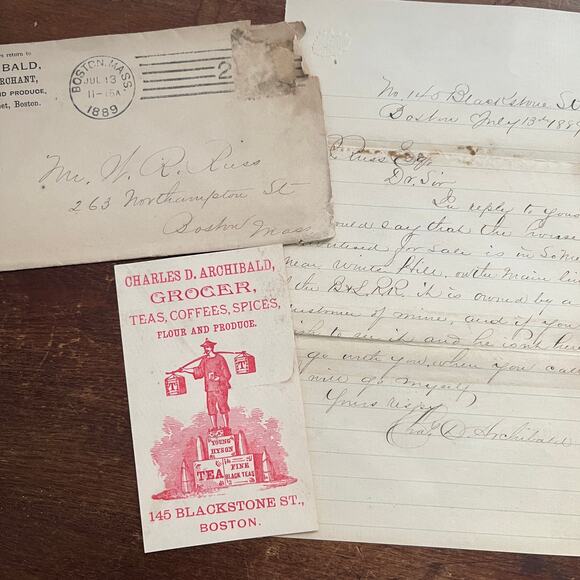 s return to
IBALD,
RCHANT,
ND PRODUCE,
et, Boston.
BOSTON, MASS.
JUL 13
11-15A
1889
2
Mr. W. R. Russ
263 Northampton St
Boston Mass
CHARLES D. ARCHIBALD,
GROCER,
TEAS, COFFEES, SPICES,
FLOUR AND PRODUCE.
T
T
YOUNG
HYSON
TEA
FINE
BLACK TEAS
145 BLACKSTONE ST.,
BOSTON.
No 145 Blackstone St
Boston July 13th 188
R. Russ Esq.
Dr. Sir
In reply to your
ould say that the house
for sale is in Som
near Winter Hill, on the Main lin
the B & L. R.R. it is owned by a
ustomer of mine, and if you
sh to see it and he isnt her
go with you, when you call
will go myself
Yours respy
Chas D. Archibald